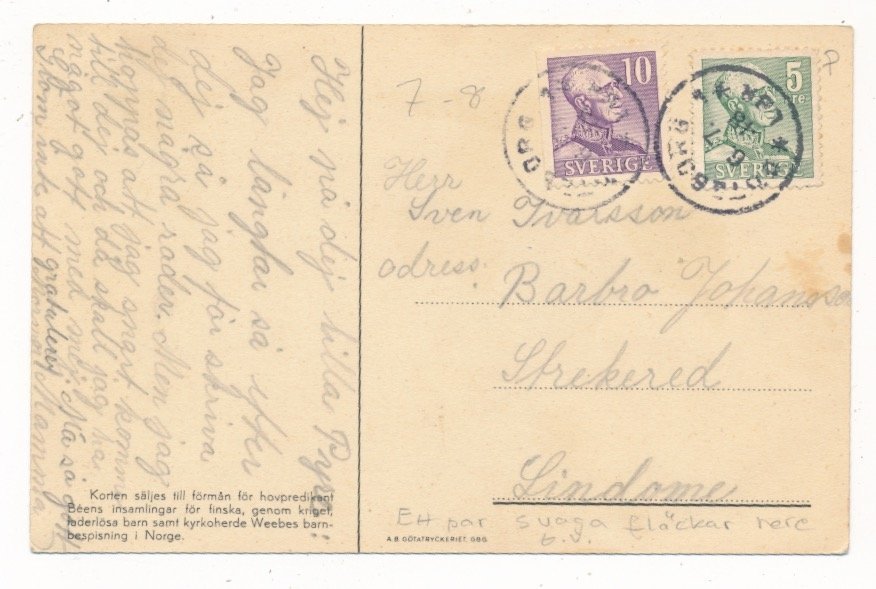 Hej på dej lilla
Jag längtar så efter
dej så jag får skriva
dej några rader. Men jag
hoppas att jag snart komma
till dej och då skall jag ha
något gott med mej. Må så gott
Glöm inte att gratulera Mamma
Korten säljes till förmån för hovpredikant
Béens insamlingar för finska, genom kriget,
faderlösa barn samt kyrkoherde Weebes barn-
bespisning i Norge.
A.B. GÖTATRYCKERIET, GBG.
7-8
7
10
SVERIGE
5
SVERIGE
Herr
Sven Ivarsson
adress:
Barbro Johansso
Strekered
Lindome
Ett par svaga fläckar nere